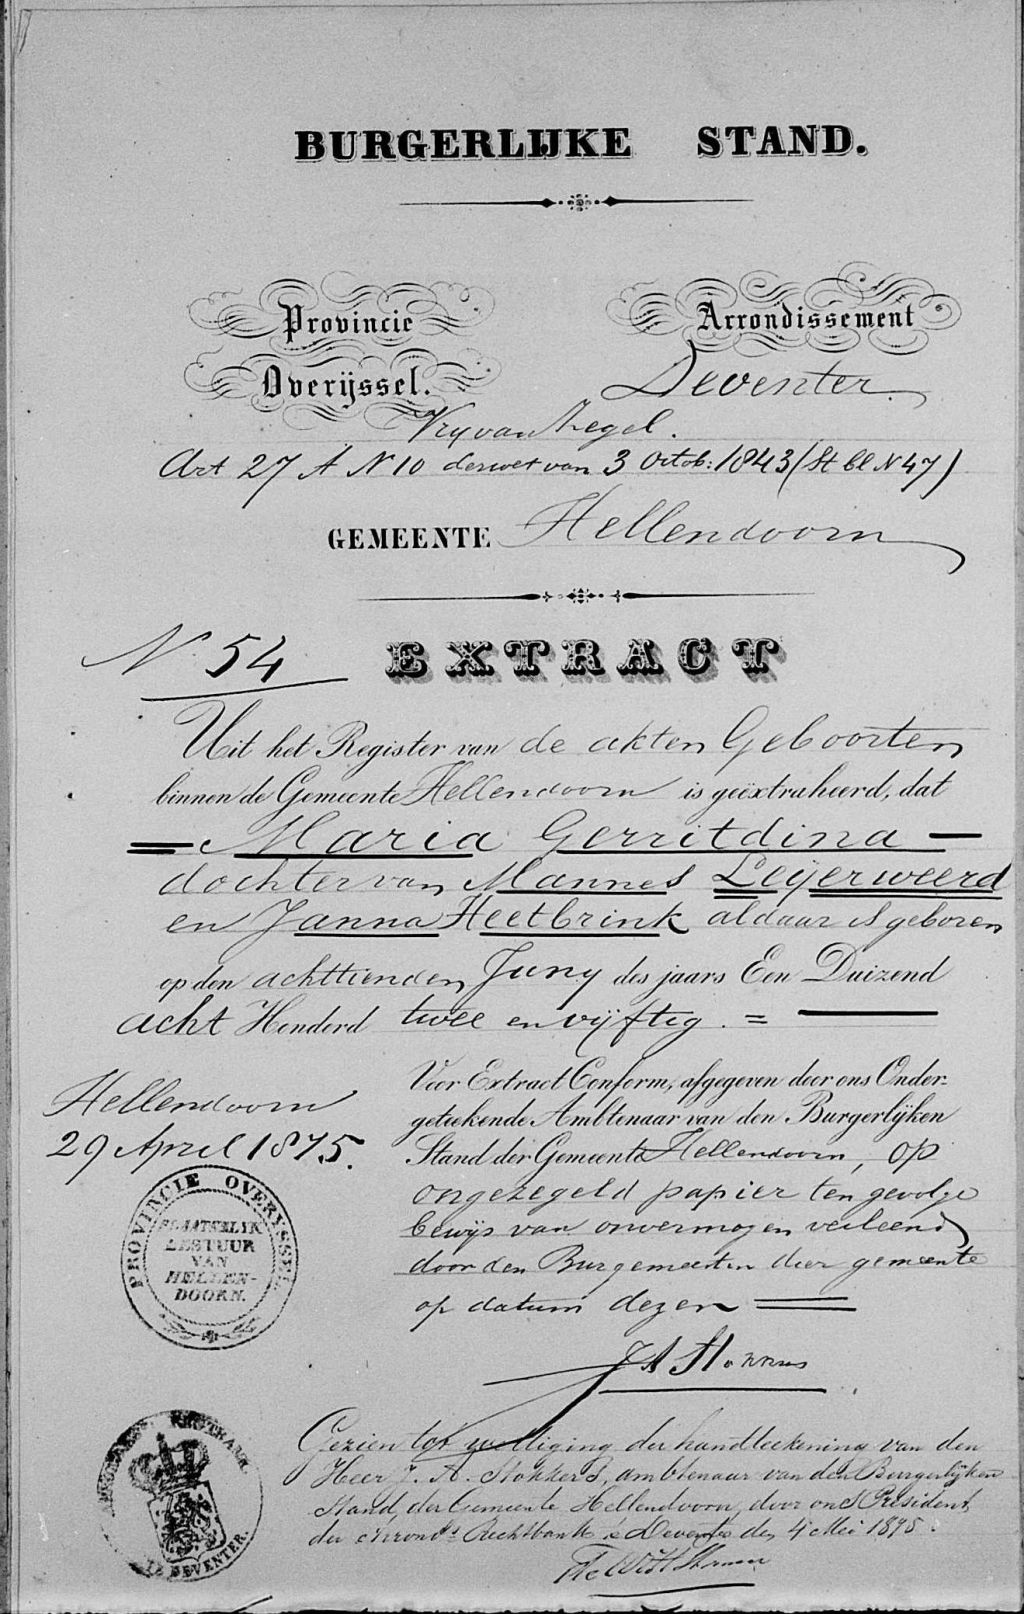 BURGERLIJKE STAND.
Provincie Arrondissement
Overijssel. Deventer.
Vry van Zegel.
Art 27 A N 10 der wet van 3 Octob: 1843 (St bl N 47)
GEMEENTE Hellendoorn
N 54 EXTRACT
Uit het Register van de akten Geboorten
binnen de Gemeente Hellendoorn is geëxtraheerd, dat
= Maria Gerritdina =
dochter van Mannes Leijerweerd
en Janna Heetbrink aldaar is geboren
op den achttienden Juny des jaars Een Duizend
acht Honderd twee en vijftig. =
Hellendoorn
29 April 1875.
Voor Extract Conform, afgegeven door ons Onder-
geteekende Ambtenaar van den Burgerlijken
Stand der Gemeente Hellendoorn, op
ongezegeld papier ten gevolge
bewijs van onvermogen verleend
door den Burgemeester dier gemeente
op datum dezer
PROVINCIE OVERYSSEL
PLAATSELYK
BESTUUR
VAN
HELLEN-
DOORN.
J A Stokkers
Gezien tot wettiging der handteekening van den
Heer J. A. Stokkers, ambtenaar van den Burgerlijken
Stand, der Gemeente Hellendoorn, door ons President
der Arrond.ts Rechtbank te Deventer den 4 Mei 1875.
TE DEVENTER.